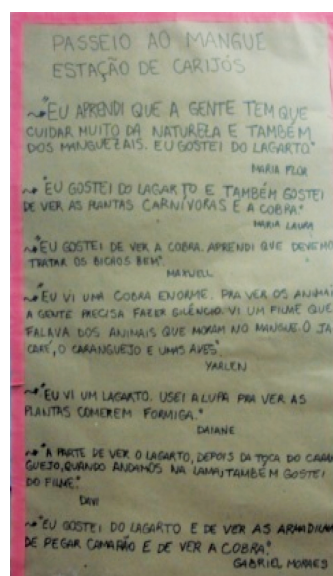 PASSEIO AO MANGUE
ESTAÇÃO DE CARIJÓS
~"EU APRENDI QUE A GENTE TEM QUE
CUIDAR MUITO DA NATUREZA E TAMBÉM
DOS MANGUEZAIS. EU GOSTEI DO LAGARTO."
MARIA FLOR
~"EU GOSTEI DO LAGARTO E TAMBÉM GOSTEI
DE VER AS PLANTAS CARNÍVORAS E A COBRA."
MARIA LAURA
~"EU GOSTEI DE VER A COBRA. APRENDI QUE DEVEMO
TRATAR OS BICHOS BEM".
MAXWELL
~"EU VI UMA COBRA ENORME. PRA VER OS ANIMAI
A GENTE PRECISA FAZER SILÊNCIO. VI UM FILME QUE
FALAVA DOS ANIMAIS QUE MORAM NO MANGUE. O JA
CARÉ, O CARANGUEJO E UMAS AVES."
YARLEN
~"EU VI UM LAGARTO. USEI A LUPA PRA VER AS
PLANTAS COMEREM FORMIGA."
DAIANE
~"A PARTE DE VER O LAGARTO, DEPOIS DA TOCA DO CARAN
GUEJO, QUANDO ANDAMOS NA LAMA, TAMBÉM GOSTEI
DO FILME."
DAVI
~"EU GOSTEI DO LAGARTO E DE VER AS ARMADILHA
DE PEGAR CAMARÃO E DE VER A COBRA."
GABRIEL MORAES